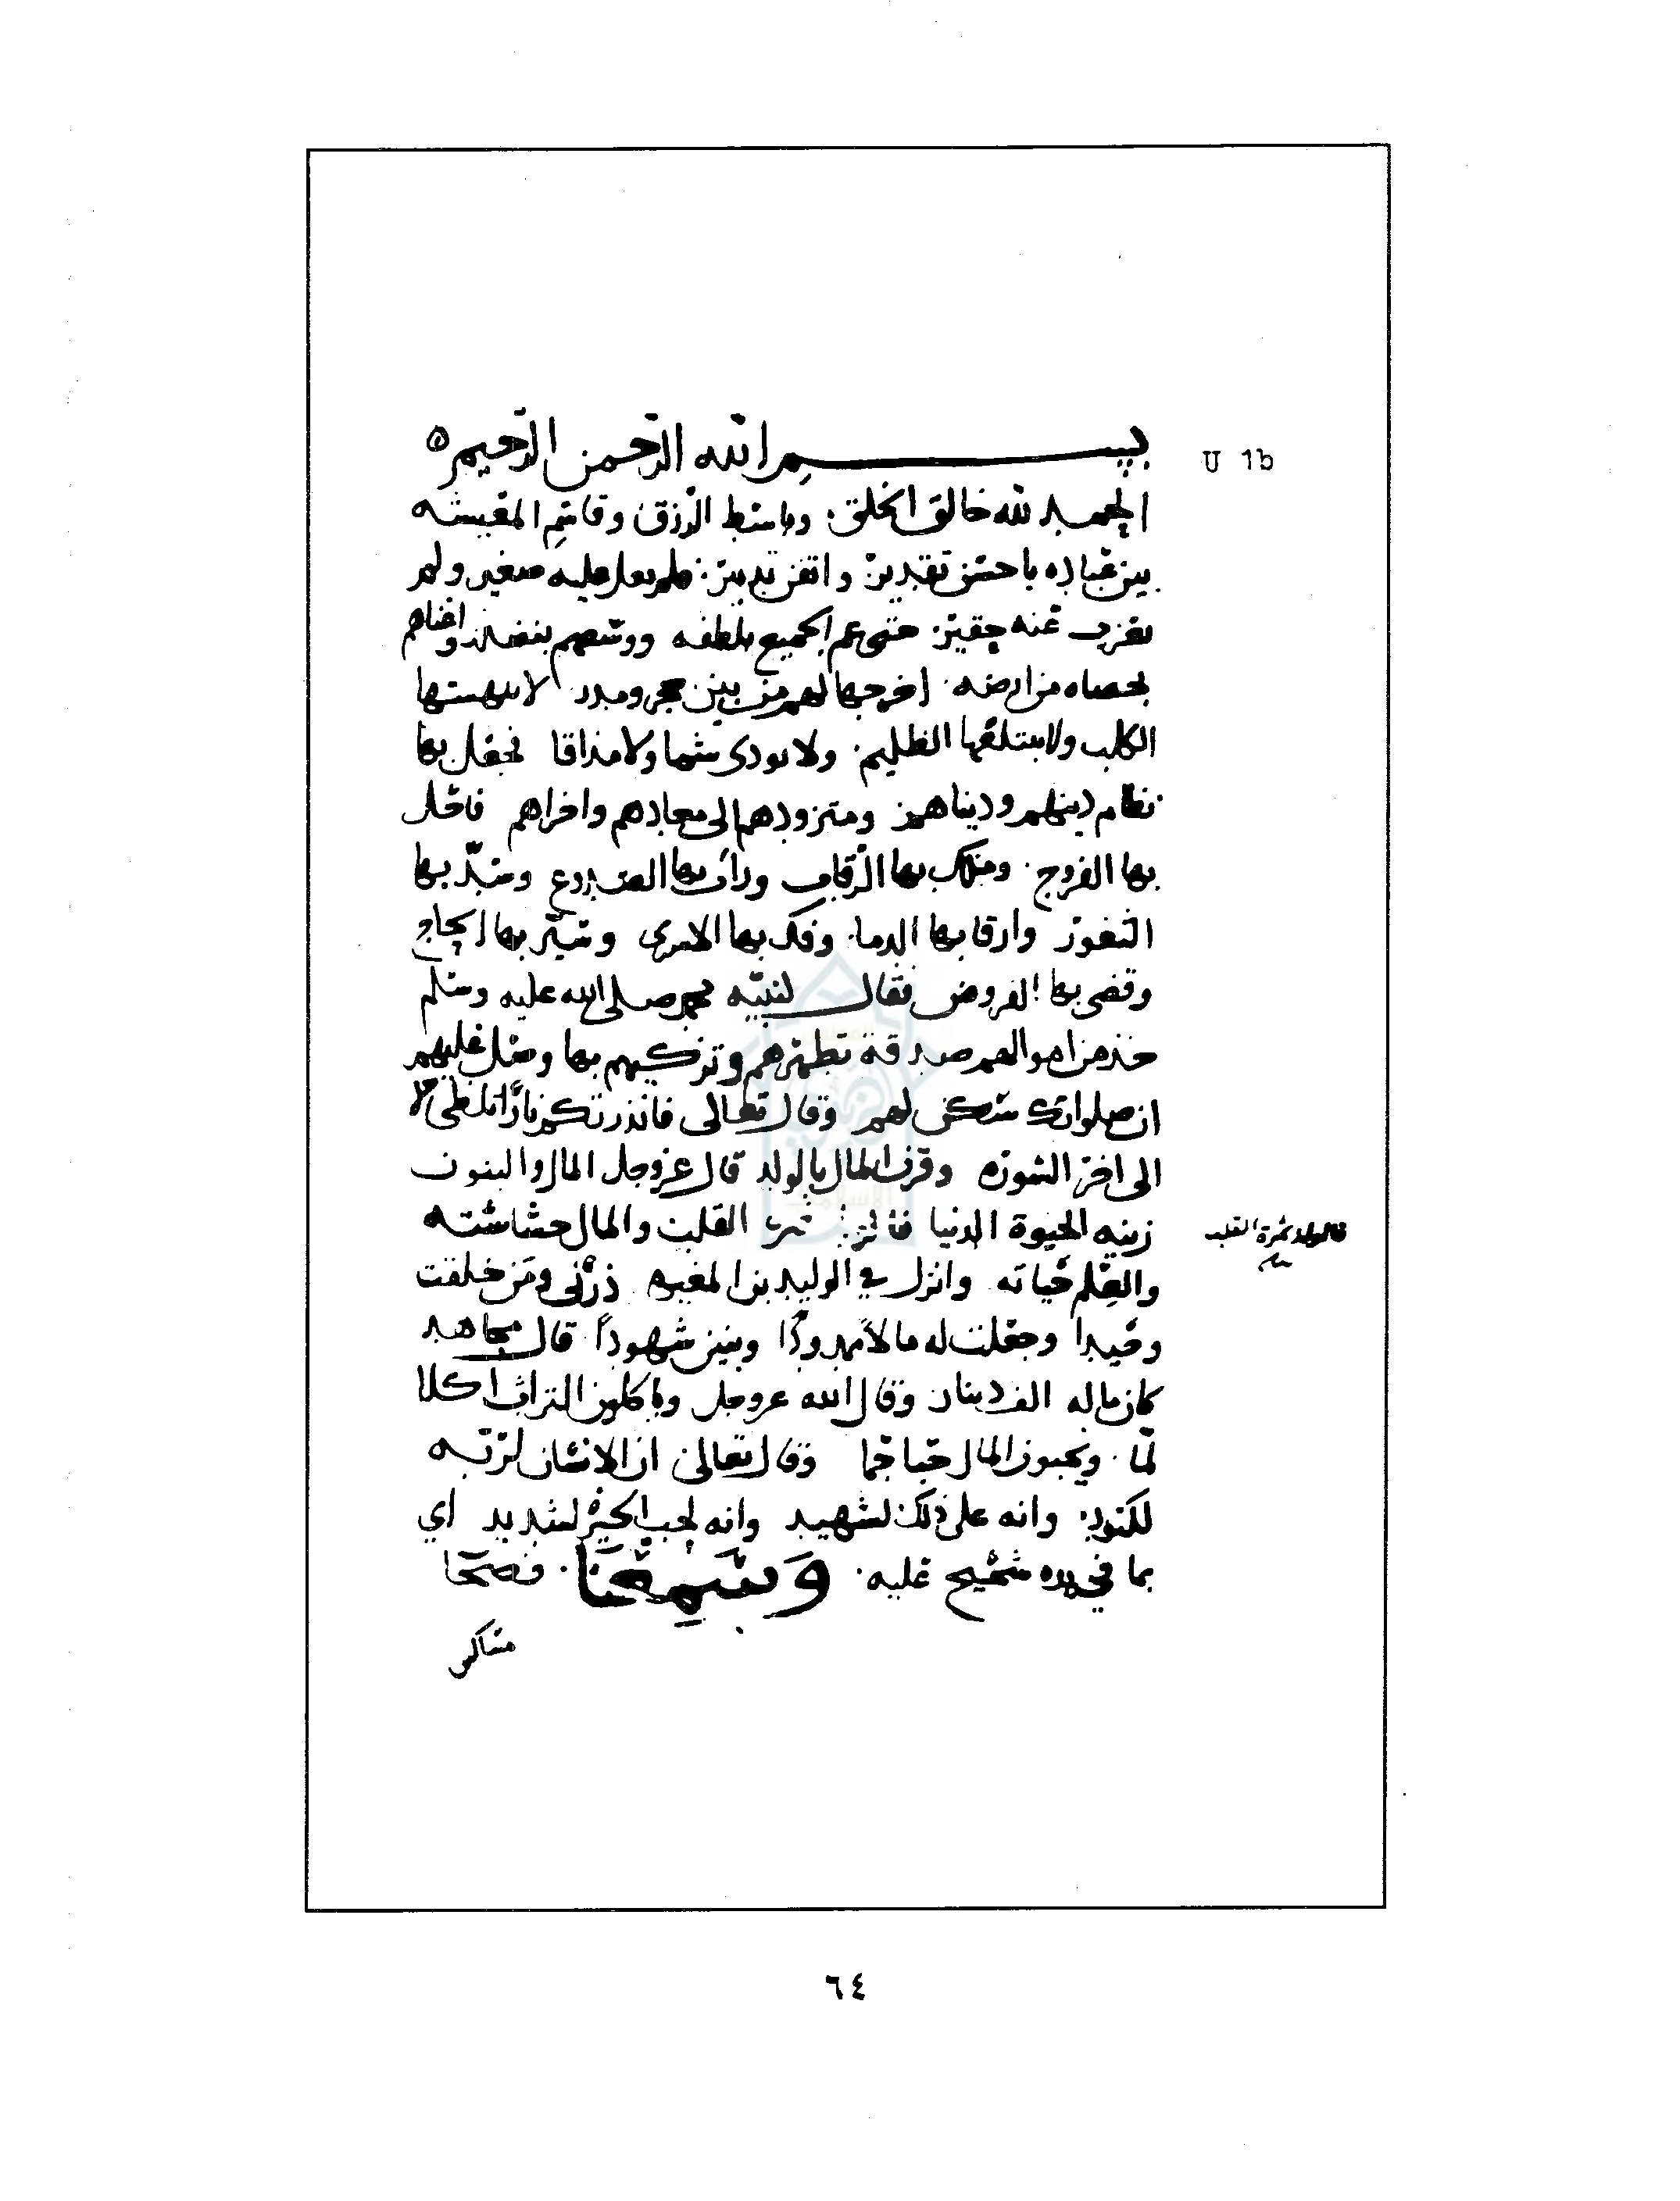 بسم الله الرحمن الرحيم ه
U 1b
الحمد لله خالق الخلق وباسط الرزق وقاسم المعيشه
بين عباده باحسن تقدير واتقن تدبير فلم يعل عليه صغير ولم
يعزب عنه حقير حتى عم الجميع بلطفه ووسعهم بفضله واغناهم
بحصاه من ارضه اخرجها لهم من بين حجر ومدر لا ينهسها
الكلب ولا يبتلعها الظليم ولا تودى شما ولا مذاقا فجعل بها
نظام دينهم ودنياهم ومتزودهم الى معادهم واخراهم فاحل
بها الفروج وملك بها الرقاب ورأب بها الصدوع وسد بها
الثغور وارقا بها الدما وفك بها الاسرى وسير بها الحاج
وقضى بها الفروض فقال لنبيه محمد صلى الله عليه وسلم
خذ من اموالهم صدقة تطهرهم وتزكيهم بها وصل عليهم
ان صلواتك سكن لهم وقال تعالى فانذرتكم نارًا تلظى لا
الى اخر السوره وقرن المال بالولد قال عز وجل المال والبنون
زينه الحيوة الدنيا ثمر القلب والمال حشاشته
فالولد ثمرة القلب
والعلم حياته وانزل في الوليد بن المغيره ذرني ومن خلقت
وحيدا وجعلت له مالاً ممدودًا وبنين شهوداً قال مجاهد
كان ماله الف دينار وقال الله عز وجل وياكلون التراث اكلا
لمّا ويحبون المال حبا جما وقال تعالى ان الانسان لربه
لكنود وانه على ذلك لشهيد وانه لحب الخير لشديد اي
بما في يده شحيح عليه وسمعنا فصحا
٦٤